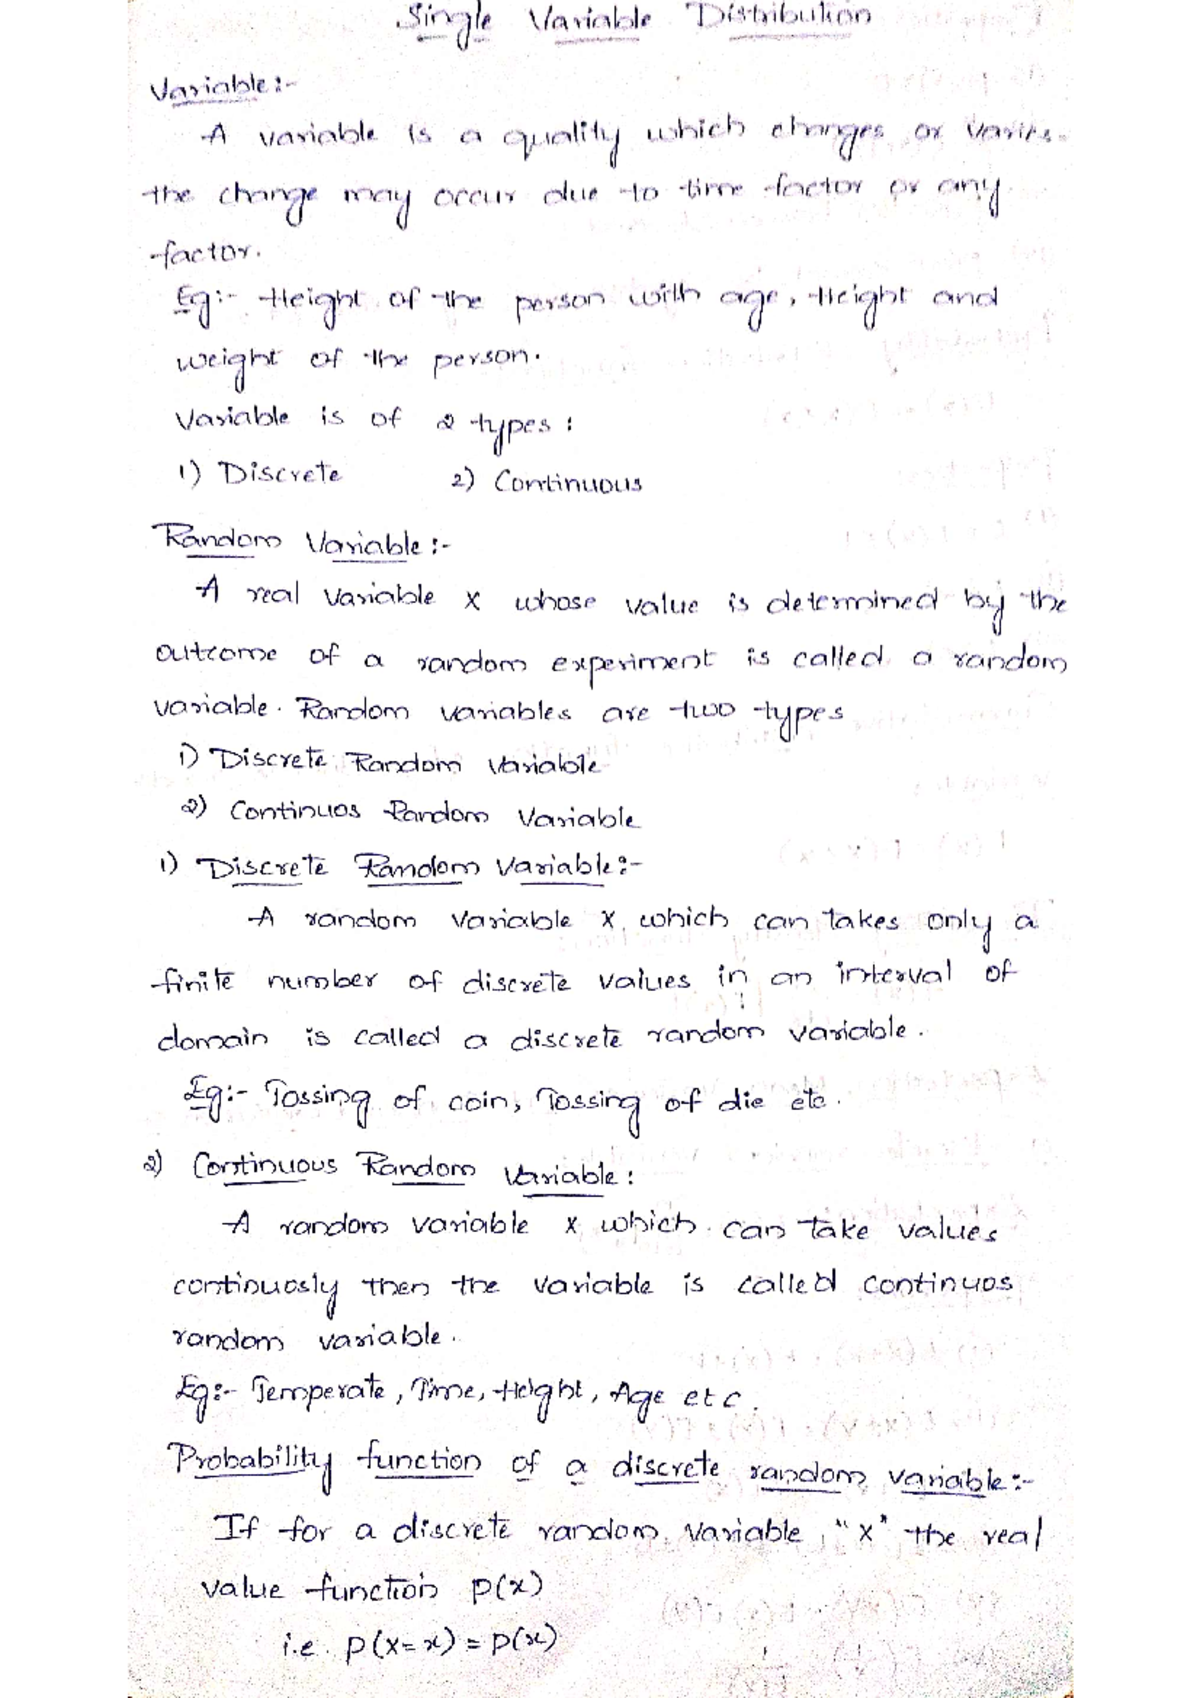 Single Variable Distribution
Variable :-
A variable is a quality which changes or varies.
the change may occur due to time factor or any
factor.
Eg:- Height of the person with age, Height and
weight of the person.
Variable is of 2 types :
1) Discrete 2) Continuous
Random Variable :-
A real variable X whose value is determined by the
outcome of a random experiment is called a random
variable. Random variables are two types
1) Discrete Random Variable
2) Continuos Random Variable
1) Discrete Random Variable :-
A random variable X which can takes only a
finite number of discrete values in an interval of
domain is called a discrete random variable.
Eg:- Tossing of coin, Tossing of die etc.
2) Continuous Random Variable :
A random variable X which can take values
continuosly then the variable is called continuos
random variable.
Eg:- Temperate, Time, Height, Age etc.
Probability function of a discrete random variable :-
If for a discrete random variable "X" the real
value function p(x)
i.e. p(X=x) = p(x)